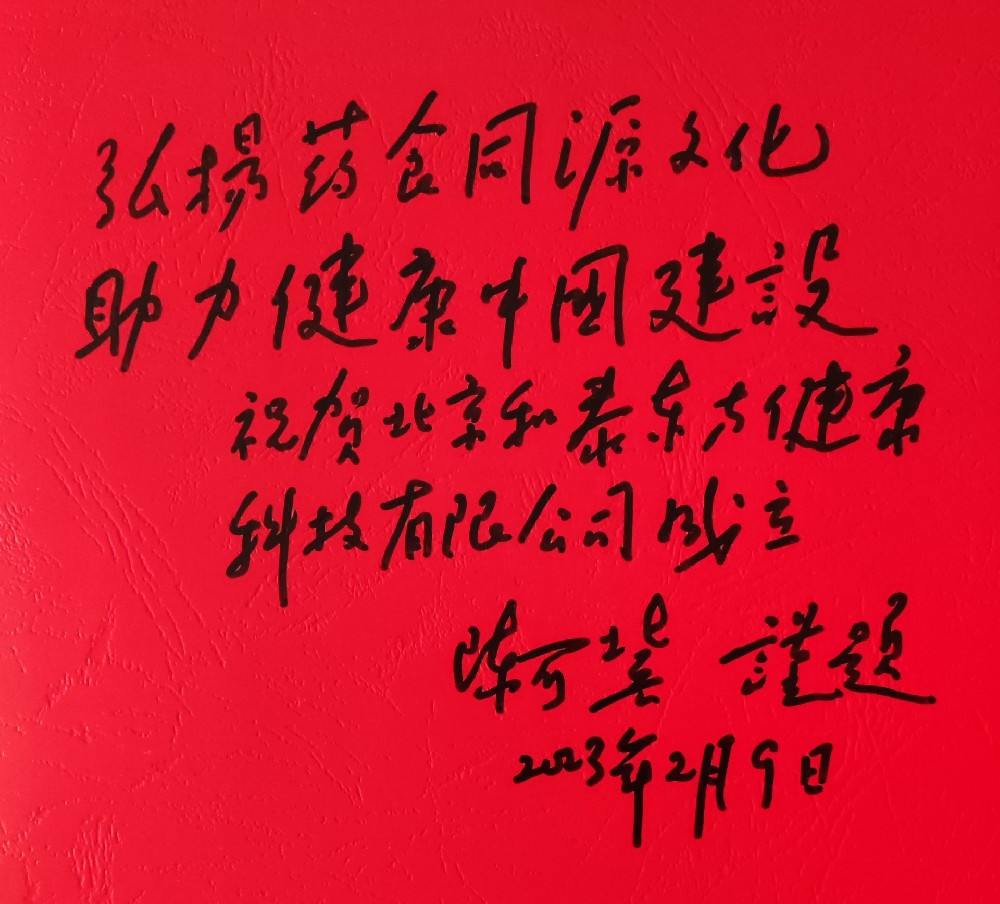 弘揚药食同源文化
助力健康中國建設
祝贺北京和泰东方健康
科技有限公司成立
陈可冀 謹题
2023年2月9日